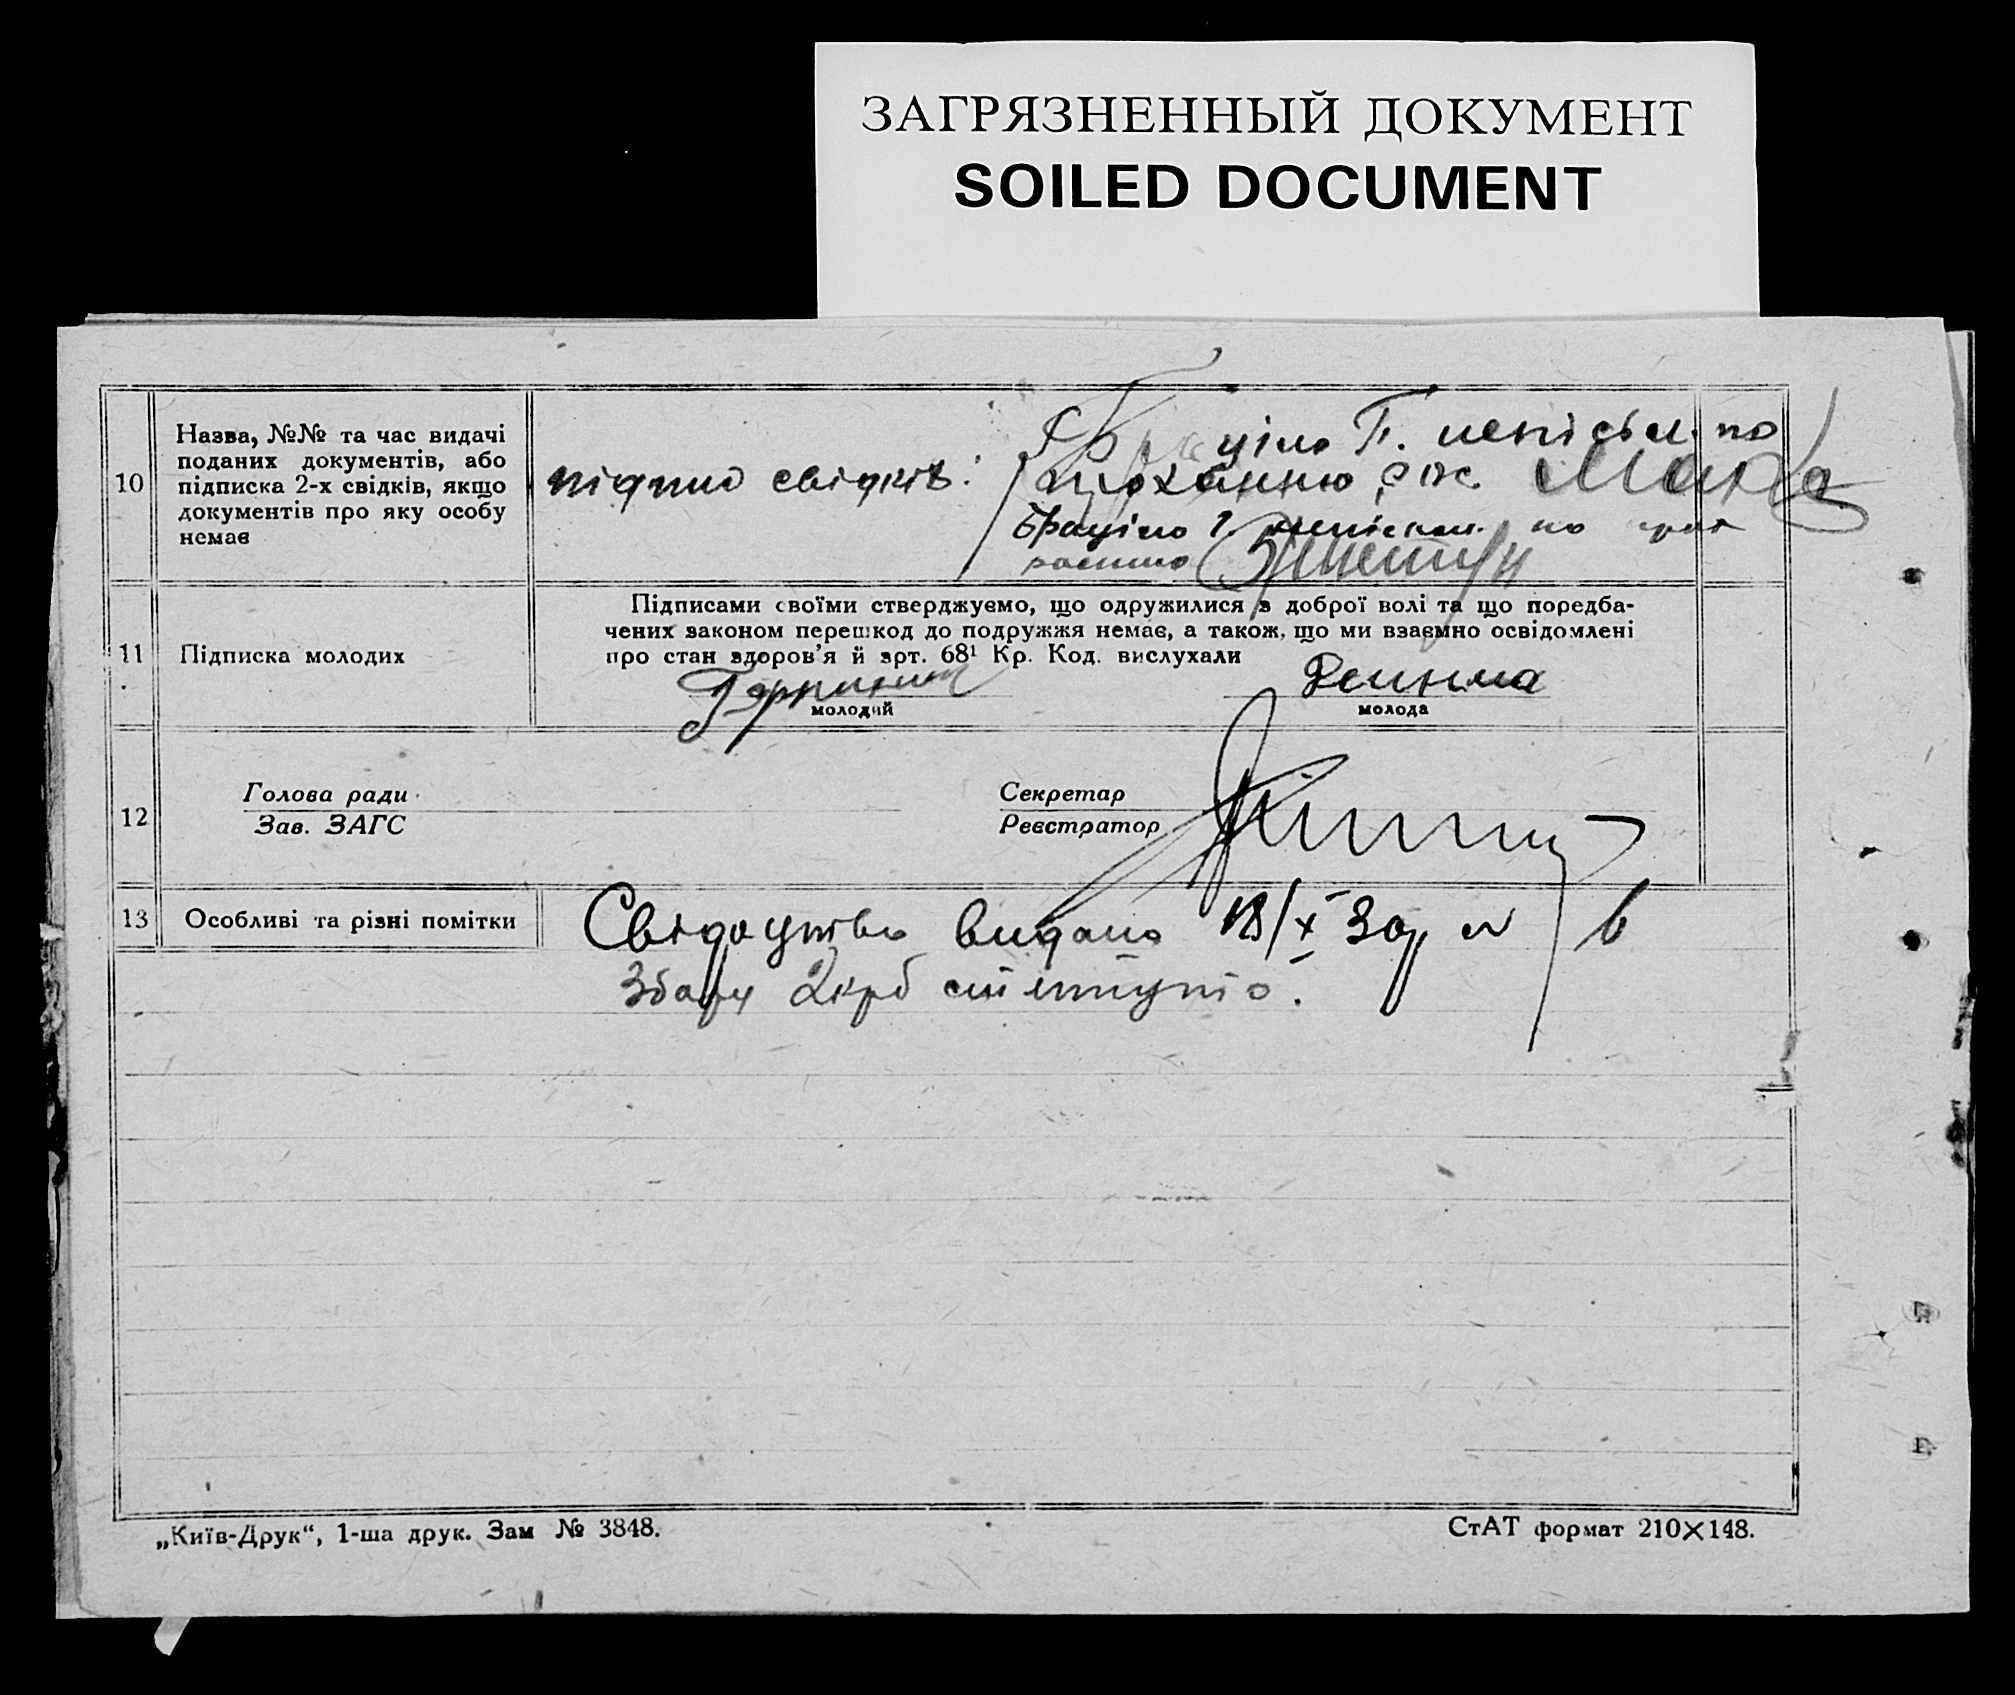 ЗАГРЯЗНЕННЫЙ ДОКУМЕНТ
SOILED DOCUMENT
10
Назва, №№ та час видачі
поданих документів, або
підписка 2-х свідків, якщо
документів про яку особу
немає
підпис свідків:
П. неписьм. по
проханню
по
11
Підписка молодих
Підписами своїми стверджуємо, що одружилися з доброї волі та що поредба-
чених законом перешкод до подружжя немає, а також, що ми взаємно освідомлені
про стан здоров'я й арт. 68¹ Кр. Код. вислухали
молодий
молода
12
Голова ради
Зав. ЗАГС
Секретар
Реєстратор
13
Особливі та різні помітки
Свідоцтво видано 18/X 30 р N 6
Збору 2 крб
„Київ-Друк“, 1-ша друк. Зам № 3848.
СтАТ формат 210×148.